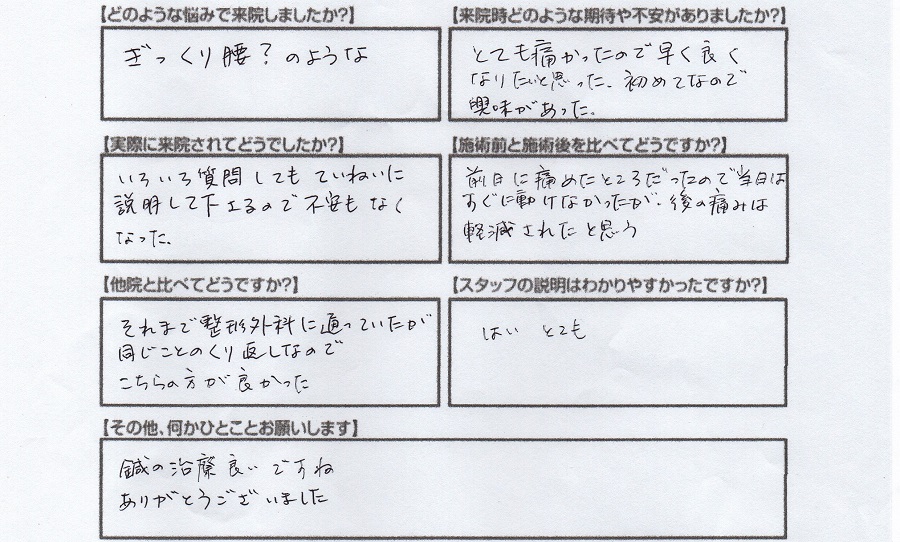 【どのような悩みで来院しましたか?】
ぎっくり腰?のような
【来院時どのような期待や不安がありましたか?】
とても痛かったので早く良く
なりたいと思った、初めてなので
興味があった。
【実際に来院されてどうでしたか?】
いろいろ質問してもていねいに
説明して下エるので不安もなく
なった。
【施術前と施術後を比べてどうですか?】
前日に痛めたところだったので当日は
すぐに動けなかったが、後の痛みは
軽減されたと思う
【他院と比べてどうですか?】
それまで整形外科に通っていたが
同じことのくり返しなので
こちらの方が良かった
【スタッフの説明はわかりやすかったですか?】
はい とても
【その他、何かひとことお願いします】
鍼の治療良いですね
ありがとうございました